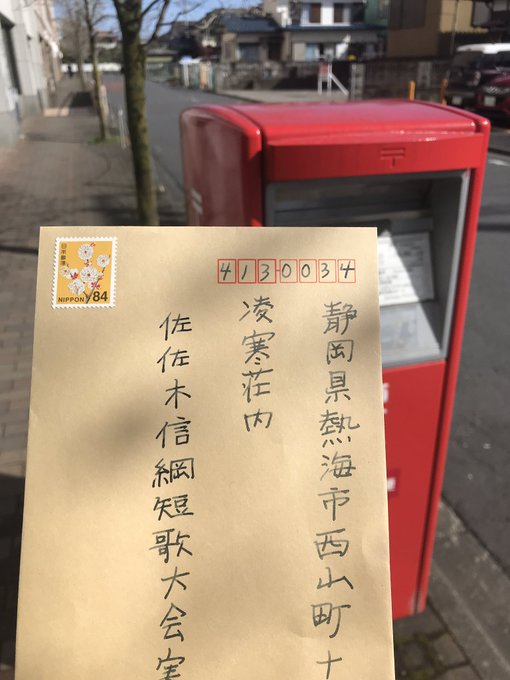 日本郵便
NIPPON 84
4130034
静岡県熱海市西山町十
凌寒荘内
佐佐木信綱短歌大会実
〒